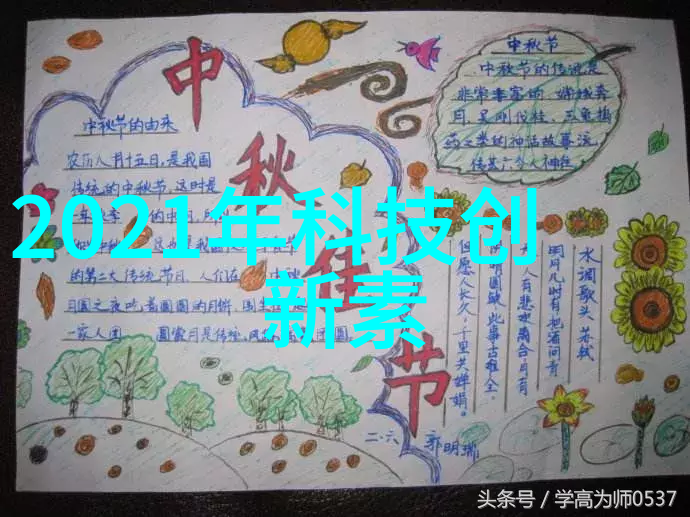 中秋佳节
中秋节的由来
农历八月十五日,是我国
传统的中秋节,这时是
一年秋季
的中
中秋
的第二大传统节日,人们在
中秋
月圆之夜吃着圆圆的月饼,
一家人团
圆
中秋节
中秋节的传说是
非常丰富的,嫦娥奔
月,吴刚伐桂,玉兔捣
药之类的神话故事流
传甚广
水调歌头 苏轼
明月几时有把酒问青
人有悲欢离合月有
阴晴圆缺,此事古难全。
但愿人长久,千里共婵娟。
二·六 郭明瑞
2021年科技创
新素
头条号/学高为师0537